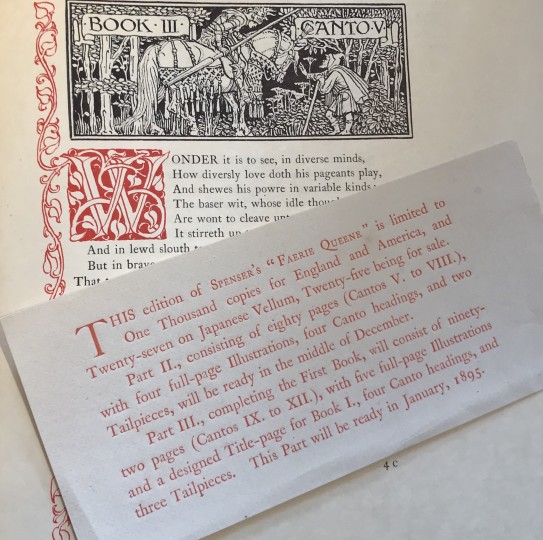 BOOK · III ·
CANTO · V
WONDER it is to see, in diverse minds,
How diversly love doth his pageants play,
And shewes his powre in variable kinds
The baser wit, whose idle
Are wont to cleave
It stirreth up
And in lewd slouth
But in brave
That
THIS edition of SPENSER'S "FAERIE QUEENE" is limited to
One Thousand copies for England and America, and
Twenty-seven on Japanese Vellum, Twenty-five being for sale.
Part II., consisting of eighty pages (Cantos V. to VIII.),
with four full-page Illustrations, four Canto headings, and two
Tailpieces, will be ready in the middle of December.
Part III., completing the First Book, will consist of ninety-
two pages (Cantos IX. to XII.), with five full-page Illustrations
and a designed Title-page for Book I., four Canto headings, and
three Tailpieces. This Part will be ready in January, 1895.
4 C